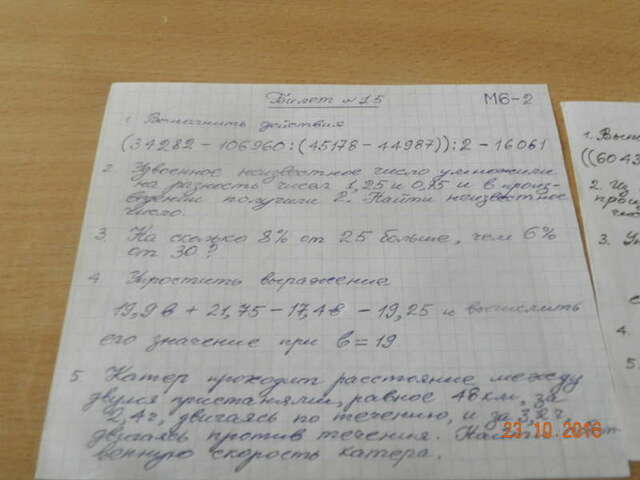 Билет №15 М6-2
1. Выполнить действия
(34282 - 106960:(45178 - 44987)):2 - 16061
2. Удвоенное неизвестное число умножили
на разность чисел 1,25 и 0,75 и в произ-
ведении получили 2. Найти неизвестное
число.
3. На сколько 8% от 25 больше, чем 6%
от 30?
4. Упростить выражение
19,9в + 21,75 - 17,4в - 19,25 и вычислить
его значение при в = 19
5. Катер проходит расстояние между
двумя пристанями, равное 48 км, за
2,4ч, двигаясь по течению, и за 3,2ч,
двигаясь против течения.
венную скорость катера.
23 10 2016
1. Выпо
((6043
2. Из
прои
чис
3. Уп
4.
5.